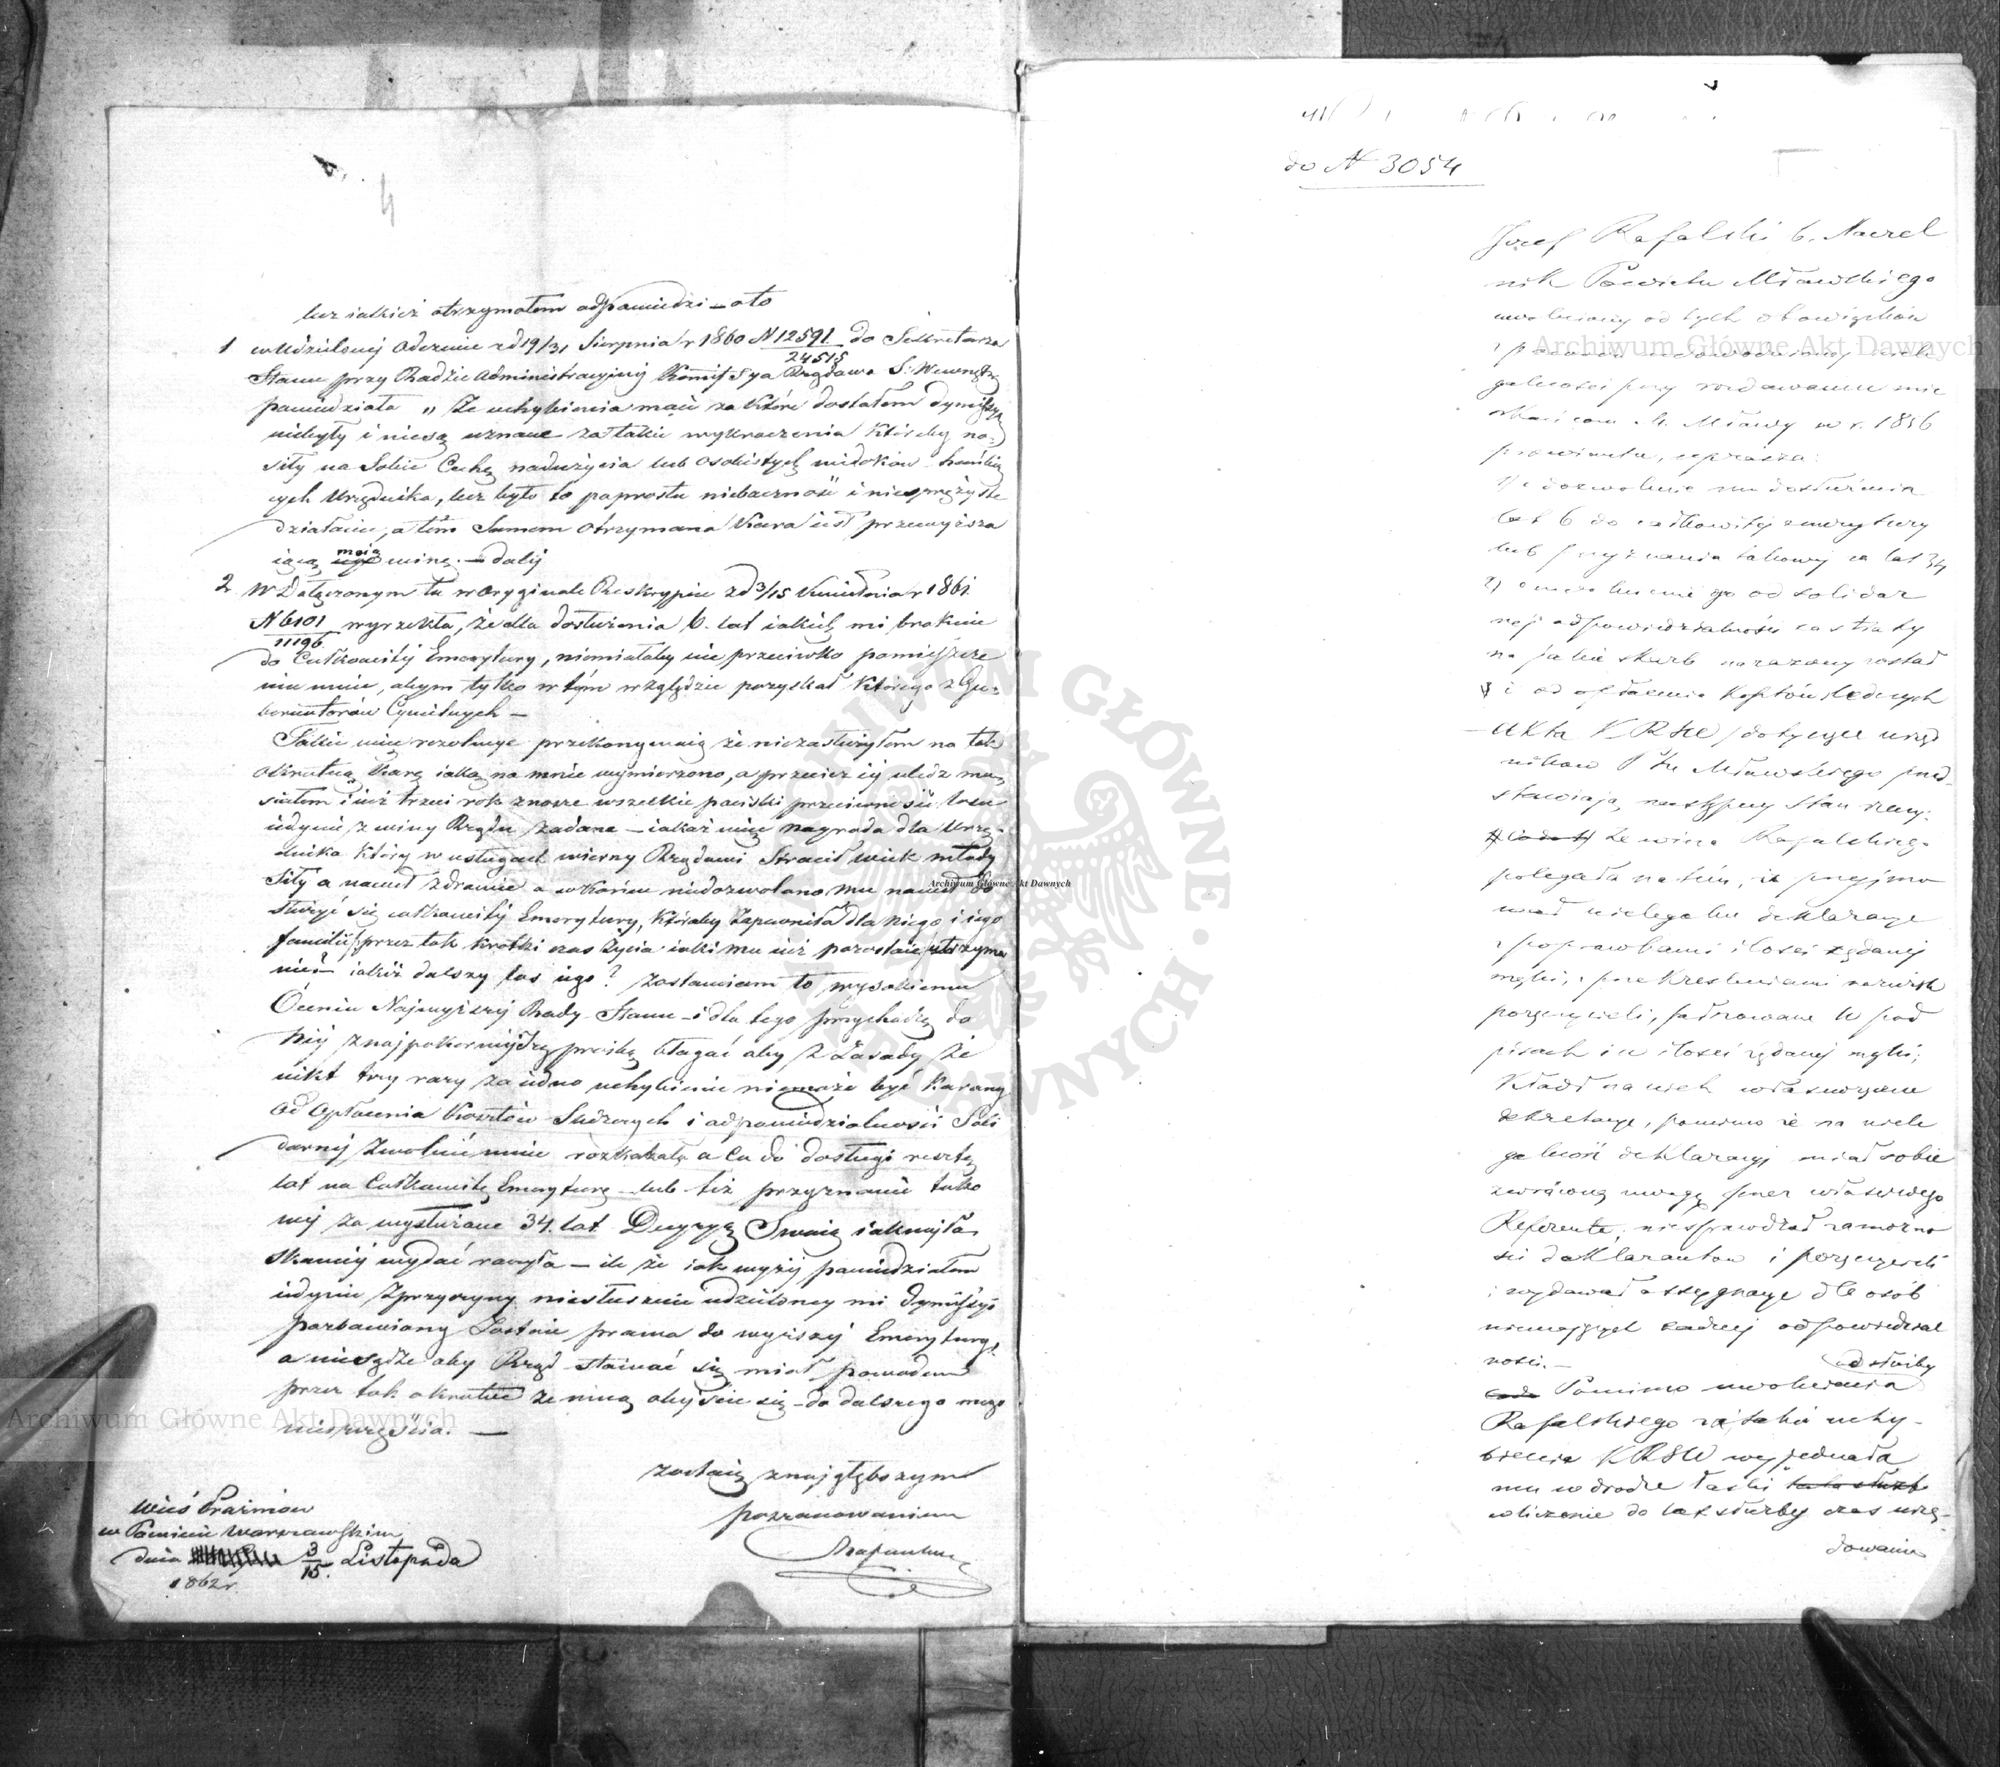 4
lecz jakież otrzymałem odpowiedzi – oto
1 w Udzieloney Odezwie z d 19/31 Sierpnia r 1860 N 12591/24515 do Sekretarza
Stanu przy Radzie Administracyjnej Kommissya Rządowa S: Wewnętrz
powiedziała „ Że uchybienia moie za które dostałem dymissyą
niebyły i niesą uznane za takie wykroczenia któreby no-
siły na Sobie Cechę nadużycia lub osobistych widoków hańbią
cych Urzędnika, lecz było to poprostu niebaczność i niesprężyste
działanie, a tem Samem otrzymana Kara iest przewyższa
iącą moią winę. – daley
2 W Dołączonym tu w oryginale Reskrypcie z d 3/15 Kwietnia r 1861
N 6101/11196 wyrzekła, że dla dosłużenia 6. lat iakich mi brakuie
do Całkowitej Emerytury, niemiałaby nic przeciwko pomieszcze
niu mnie, abym tylko w tym względzie pozyskał którego z Gu-
bernatorów Cywilnych –
Takie więc rezolucye przekonywaią że niezasłużyłem na tak
okrutną Karę iaką na mnie wymierzono, a przecież iey uledz mu-
siałem i iuż trzeci rok znoszę wszelkie pociski przeciwności losu
iedynie z winy Rządu zadane – iakaż więc nagroda dla Urzę-
dnika który w usługach wierny Rządowi Stracił wiek młody
Siły a nawet zdrowie a w końcu niedozwolono mu nawet do
służyć się całkowitej Emerytury, któraby zapewniła dla niego i iego
familii przez tak krótki czas życia iaki mu iuż pozostaie utrzyma
nie? – iakiż dalszy los iego? zostawiam to wysokiemu
Ocenieniu Najwyższej Rady Stanu – i dla tego przychodzę do
Niej z najpokorniejszą prośbą błagać aby z Zasady że
nikt trzy razy za iedno uchybienie niemoże być Karany
od opłacenia Kosztów Śledczych i odpowiedzialności Soli
darnej zwolnić mnie rozkazała a Co do dosługi reszty
lat na Całkowitą Emeryturę – lub też przyznanie tako
wej za wysłużone 34. lat Decyzyą Swoią iaknajła
skawiej wydać raczyła – ile że iak wyżej powiedziałem
iedynie z przyczyny niesłusznie udzieloney mi dymissyi
pozbawiony Zostaię prawa do wyższej Emerytury,
a niesądzę aby Rząd stawać się miał powodem
przez tak okrutne ze mną obejście się – do dalszego mego
nieszczęścia. –
zostaię z najgłębszym
poszanowaniem
wieś Prażmów
w Powiecie Warszawskim
dnia 3/15. Listopada
1862 r.
do N 3054
Józef Rafalski b. Naczel
nik Powiatu Mławskiego
uwolniony od tych obowiązków
galności przy rozdawaniu mie
szkańcom M. Mławy w r. 1856
prowiantu, uprasza:
1/ o dozwolenie mu dosłużenia
lat 6 do całkowitej emerytury
lub przyznania takowej za lat 34
2/ o uwolnienie go od solidar
nej odpowiedzialności za straty
na jakie skarb narażony został
i od opłacenia kosztów śledczych
– Akta KRSW dotyczące urzęd
ników Ptu Mławskiego przed-
stawiają następny stan rzeczy:
że wina Rafalskiego
polegała na tem, iż przyjmo
wał nielegalne deklaracye
z poprawkami ilości żądanej
mąki, z przekreśleniami nazwisk
poręczycieli, fałszowane w pod
pisach i w ilości żądanej mąki;
kładł na nich własnoręczne
dekretacye, pomimo że na niele
galność deklaracyi miał sobie
zwróconą uwagę przez właściwego
Referenta, niesprawdzał zamożno
ści deklarantów i poręczycieli
i wydawał assygnacye dla osób
niemających żadnej odpowiedzial
ności. –
Pomimo uwolnienia od służby
Rafalskiego za takie uchy-
bienia KRSW wyjednała
mu w drodze łaski
wliczenie do lat służby czas urzę-
dowania
Archiwum Główne Akt Dawnych
Archiwum Główne Akt Dawnych
Archiwum Główne Akt Dawnych
ARCHIWUM GŁÓWNE AKT DAWNYCH